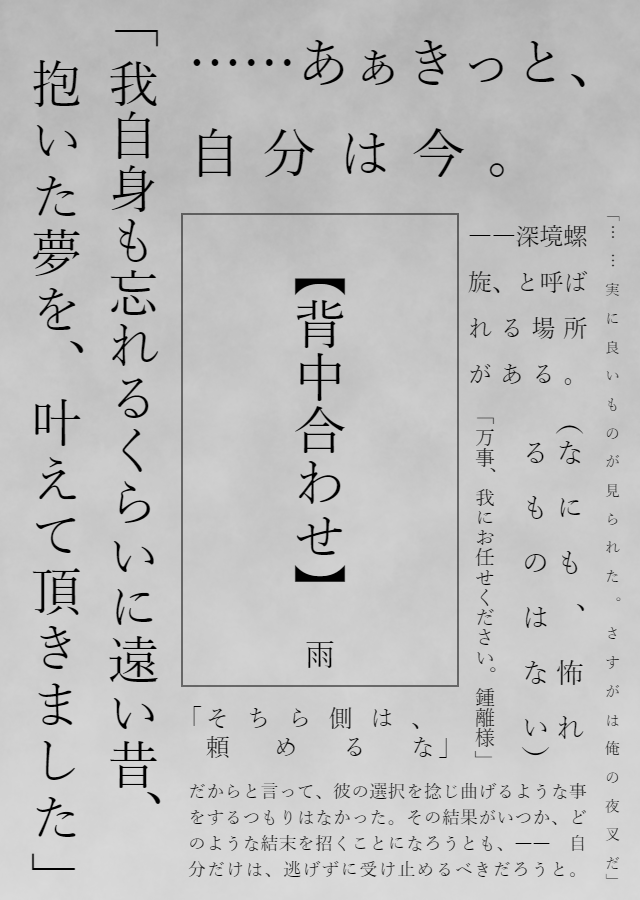 ……あぁきっと、
自分は今。
「……実に良いものが見られた。さすがは俺の夜叉だ」
——深境螺
旋、と呼ば
れる場所
がある。
(なにも、怖れ
るものはない)
「万事、我にお任せください。鍾離様」
【背中合わせ】
雨
「そちら側は、
頼めるな」
だからと言って、彼の選択を捻じ曲げるような事
をするつもりはなかった。その結果がいつか、ど
のような結末を招くことになろうとも、—— 自
分だけは、逃げずに受け止めるべきだろうと。
「我自身も忘れるくらいに遠い昔、
抱いた夢を、叶えて頂きました」